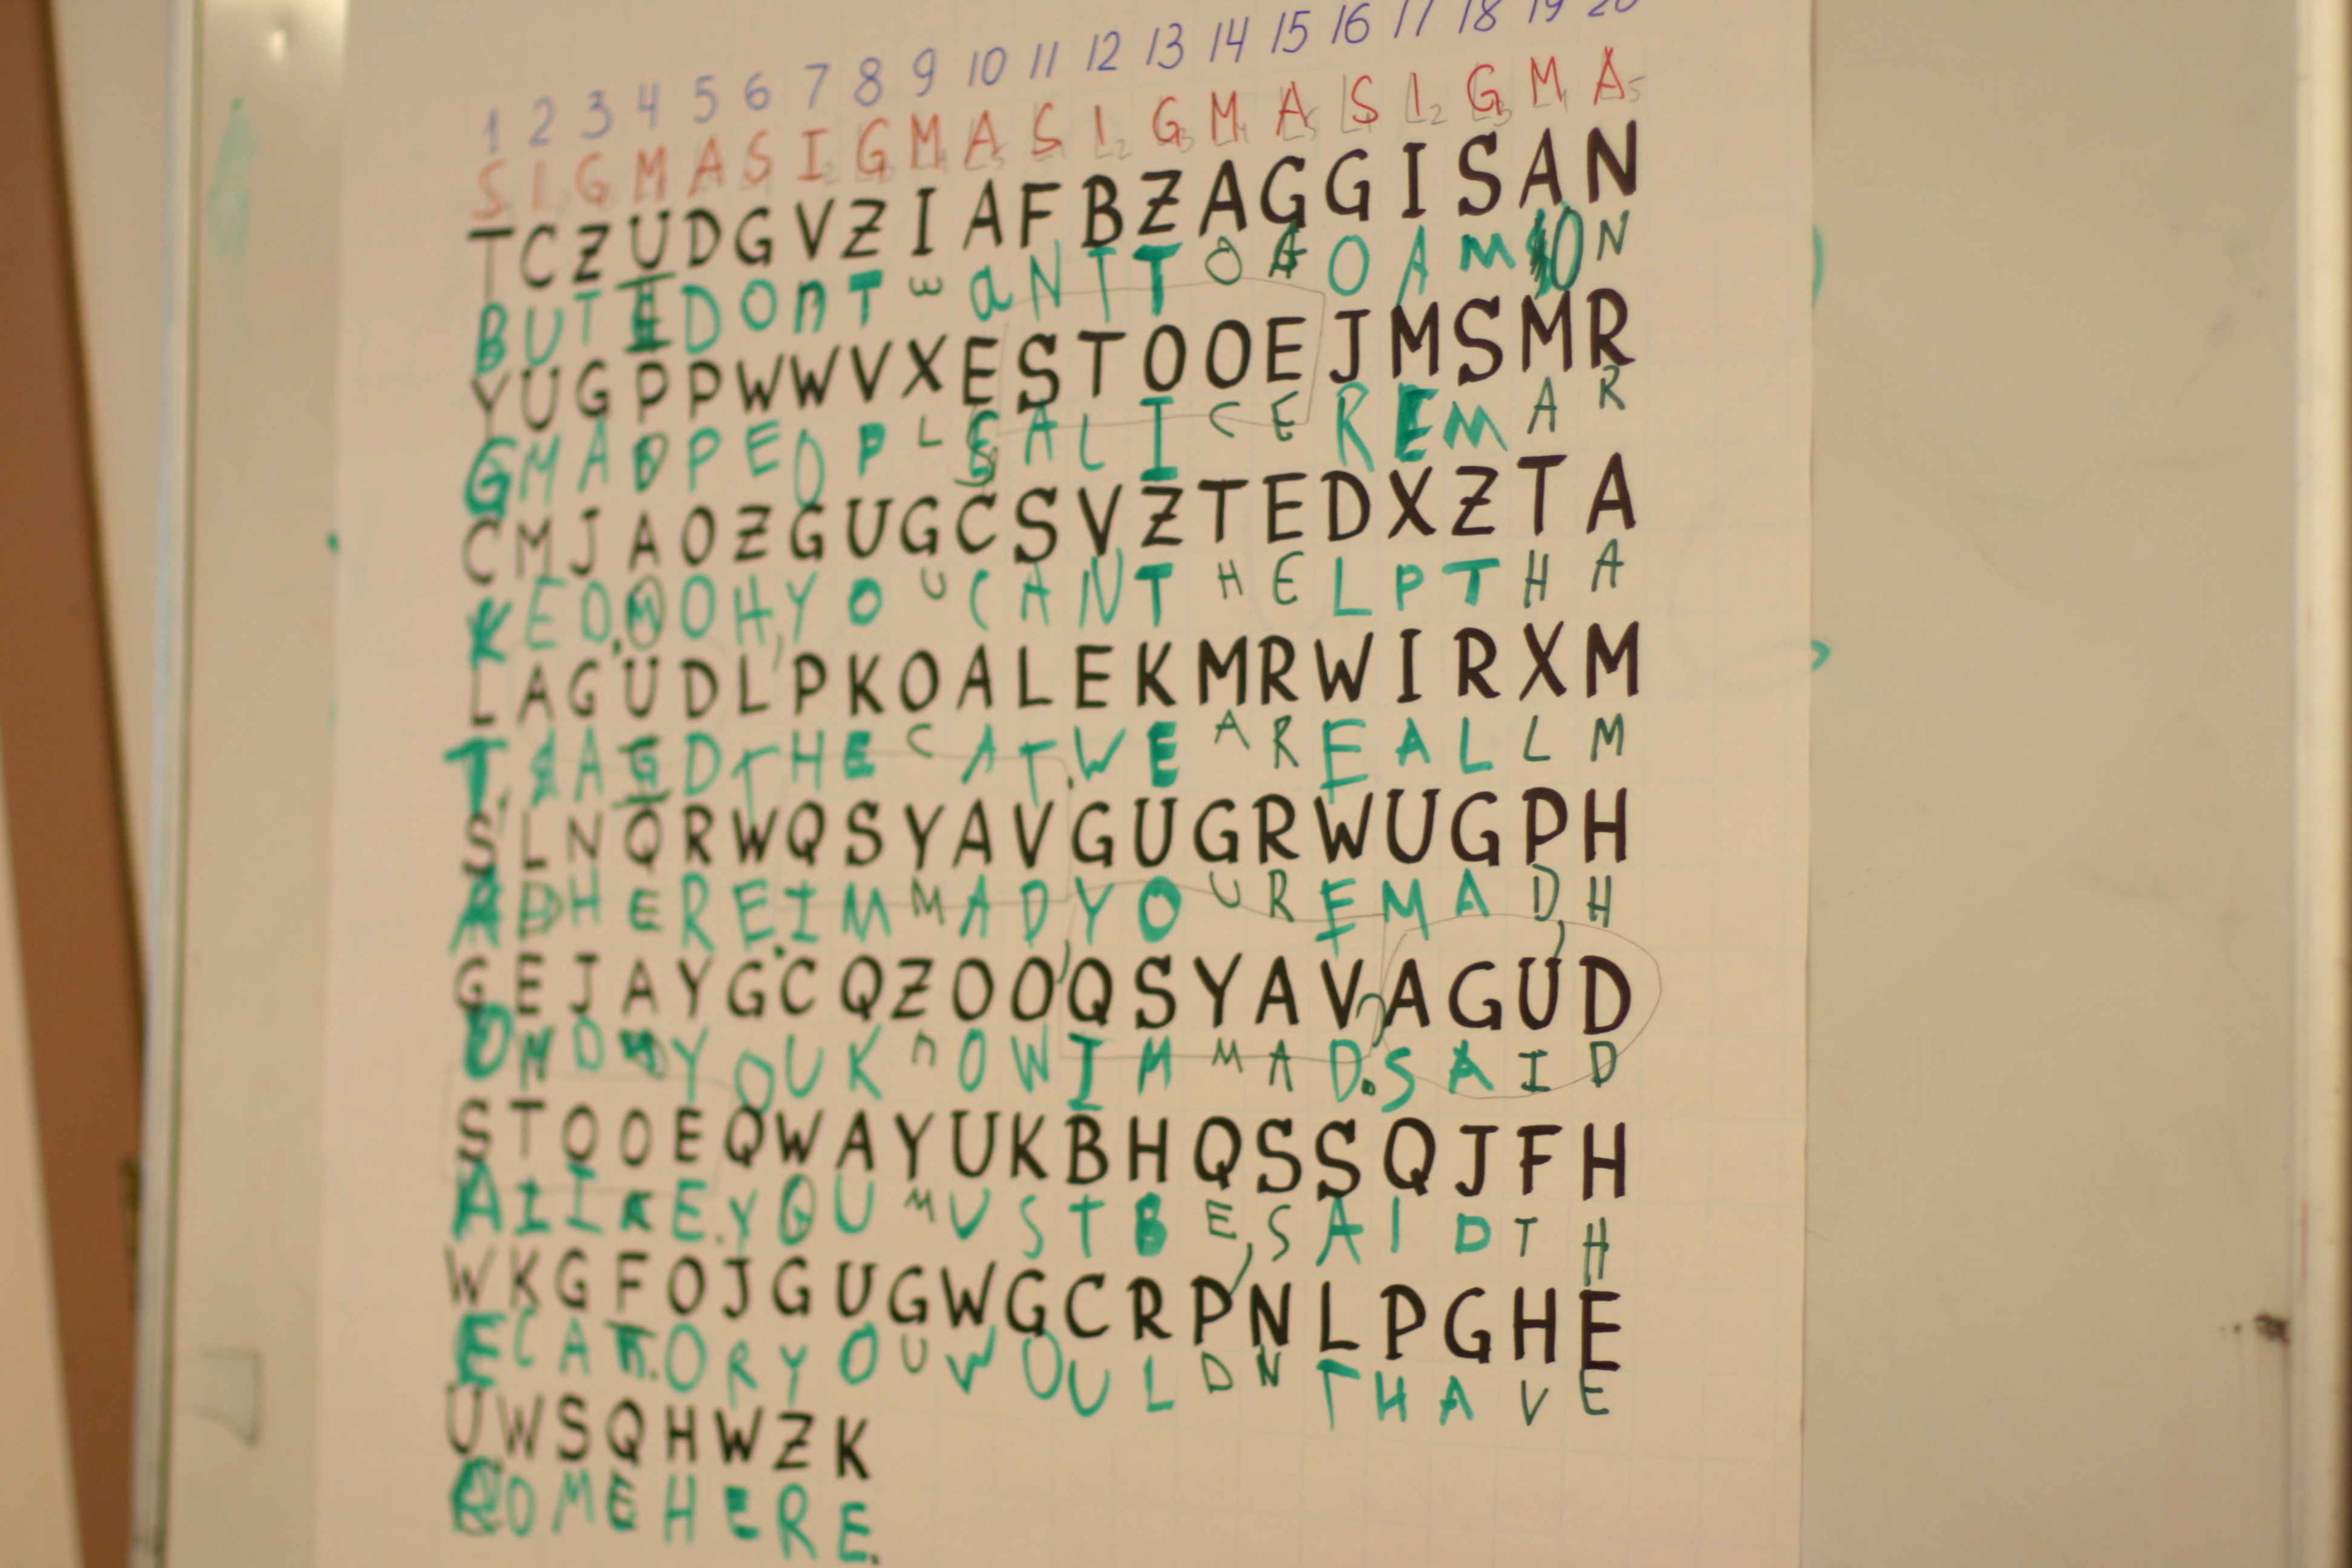 1 2 3 4 5 6 7 8 9 10 11 12 13 14 15 16 17 18 19 20
S I G M A S I G M A S I G M A S I G M A
T C Z U D G V Z I A F B Z A G G I S A N
B U T I D O n T w a N T T O G O A M O N
Y U G P P W W V X E S T O O E J M S M R
G M A D P E O P L E A L I C E R E M A R
C M J A O Z G U G C S V Z T E D X Z T A
K E D. O O H, Y O U C A N T H E L P T H A
L A G U D L P K O A L E K M R W I R X M
T, S A I D T H E C A T. W E A R E A L L M
S L N Q R W Q S Y A V G U G R W U G P H
A D H E R E. I M M A D, Y O U R E M A D, H
G E J A Y G C Q Z O O Q S Y A V A G U D
O W D O Y O U K n O W I M M A D? S A I D
S T O O E Q W A Y U K B H Q S S Q J F H
A L I C E. Y O U M U S T B E, S A I D T H
W K G F O J G U G W G C R P N L P G H E
E C A T. O R Y O U W O U L D N T H A V E
U W S Q H W Z K
C O M E H E R E.